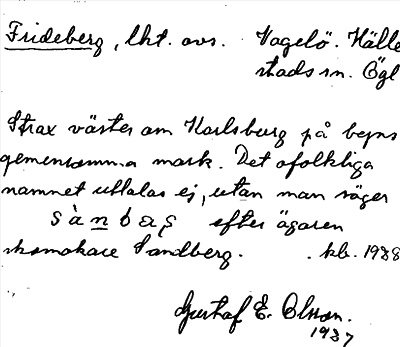 Frideberg, lht. avs. Vagelö. Hälle
stads sn. Ögl
Strax väster om Karlsburg på byns
gemensamma mark. Det ofolkliga
namnet uttalas ej, utan man säger
sànbas efter ägaren
skomakare Sandberg. kb. 1938
Gustaf E. Olsson.
1937